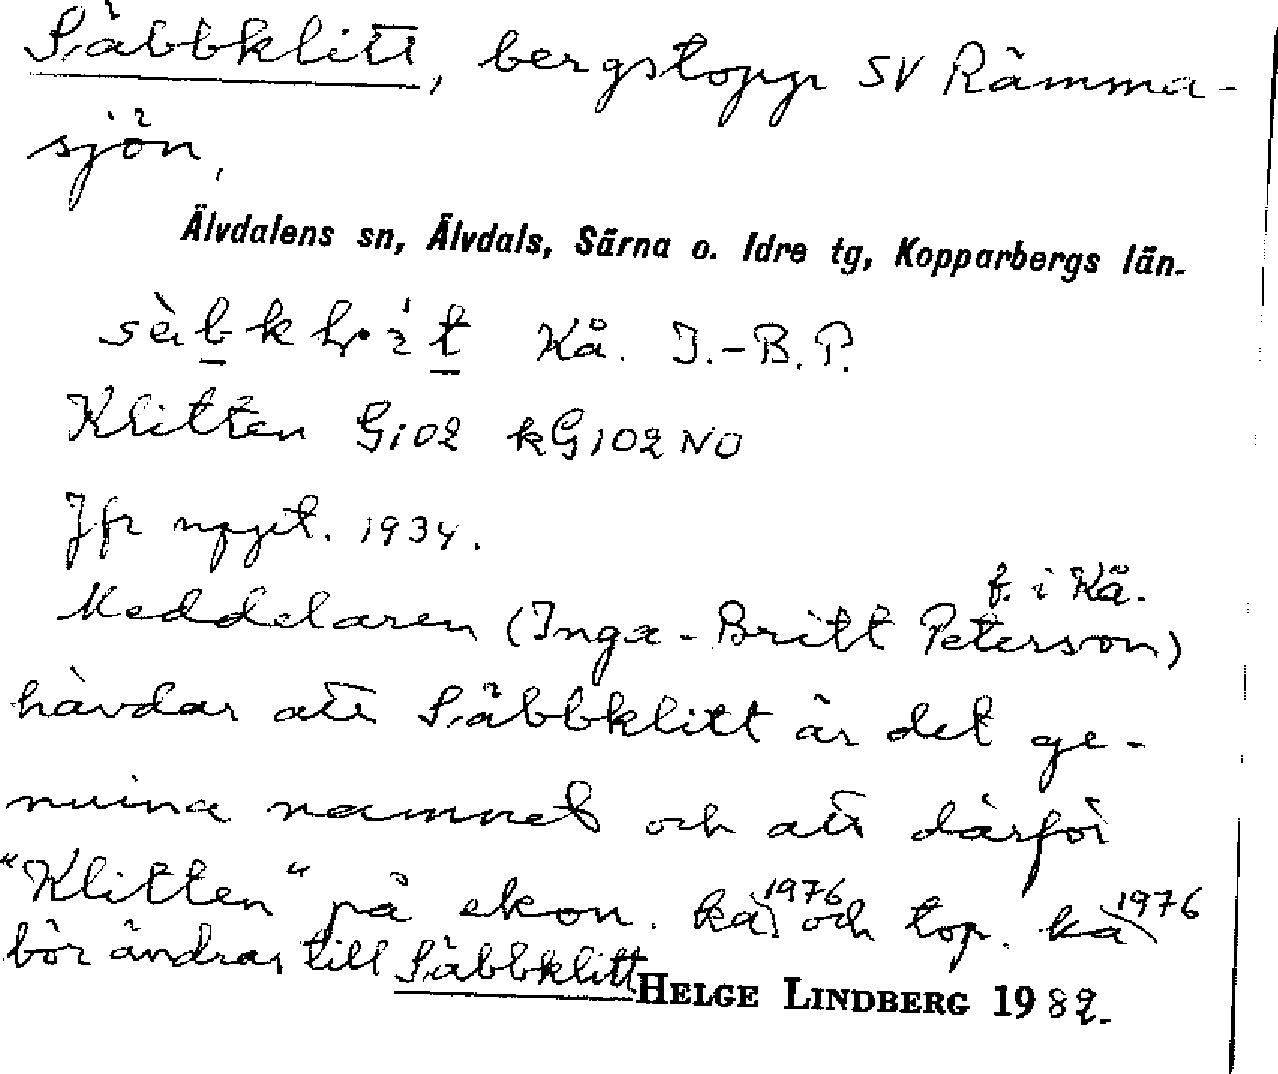 Säbbklitt, bergstopp SV Rämma-
sjön,
Älvdalens sn, Älvdals, Särna o. Idre tg, Kopparbergs län.
Kå. I.-B.P.
Klitten G102 kG102 NO
Jfr uppt. 1934.
f. i Kå.
Meddelaren (Inga-Britt Peterson)
hävdar att Säbbklitt är det ge-
nuina namnet och att därför
"Klitten" på ekon. ka 1976 och top. ka 1976
bör ändras till Säbbklitt
HELGE LINDBERG 1982.